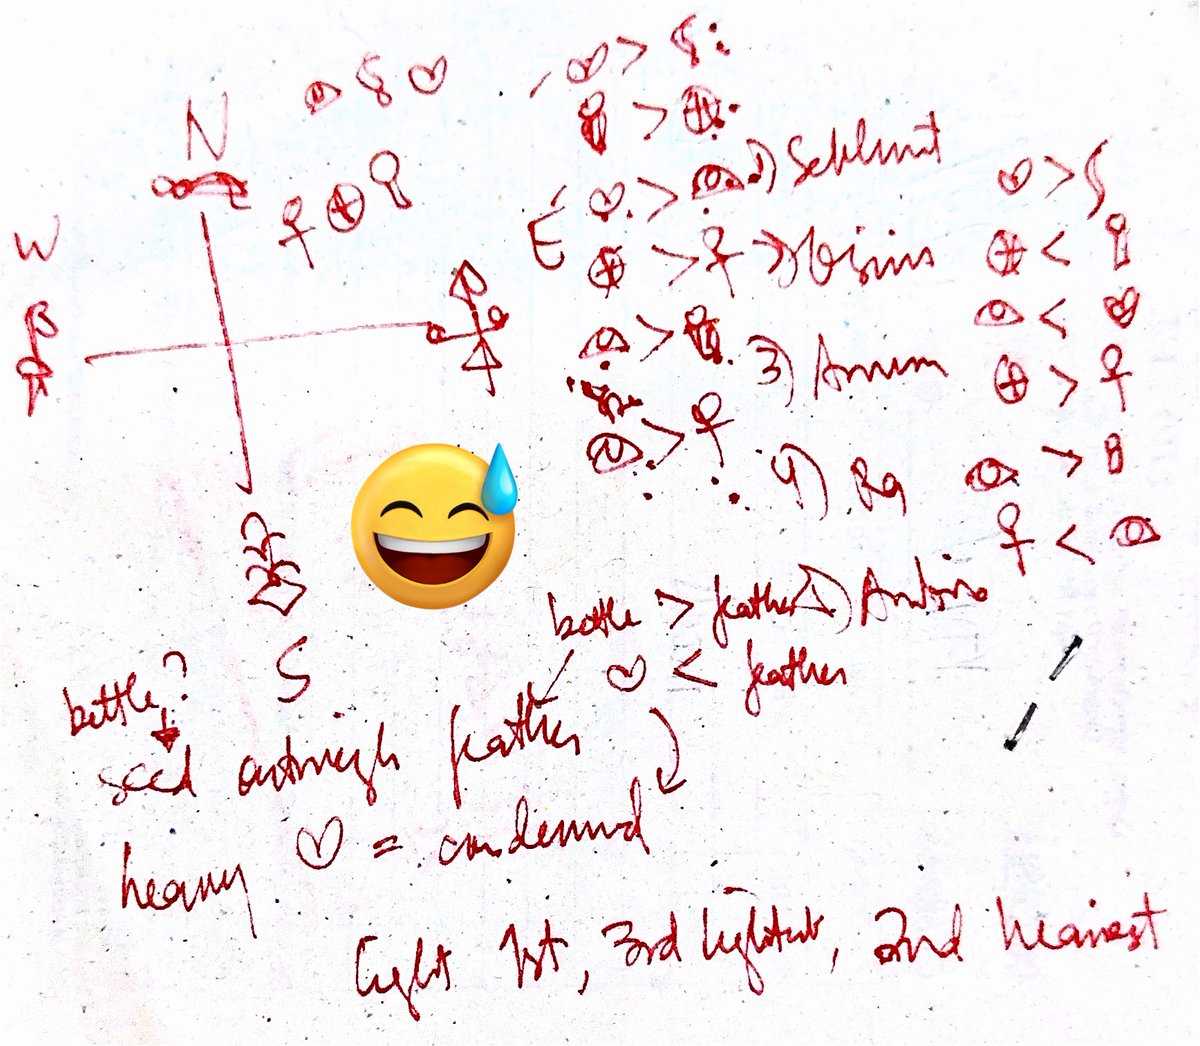 N
W
E
S
1) Sekhmet
2) Osiris
3) Amun
4) Ra
bottle > feather
5) Anubis
♡ < feather
bottle?
seed outweigh feather
heavy ♡ = condemned
light 1st, 3rd lightest, 2nd heaviest